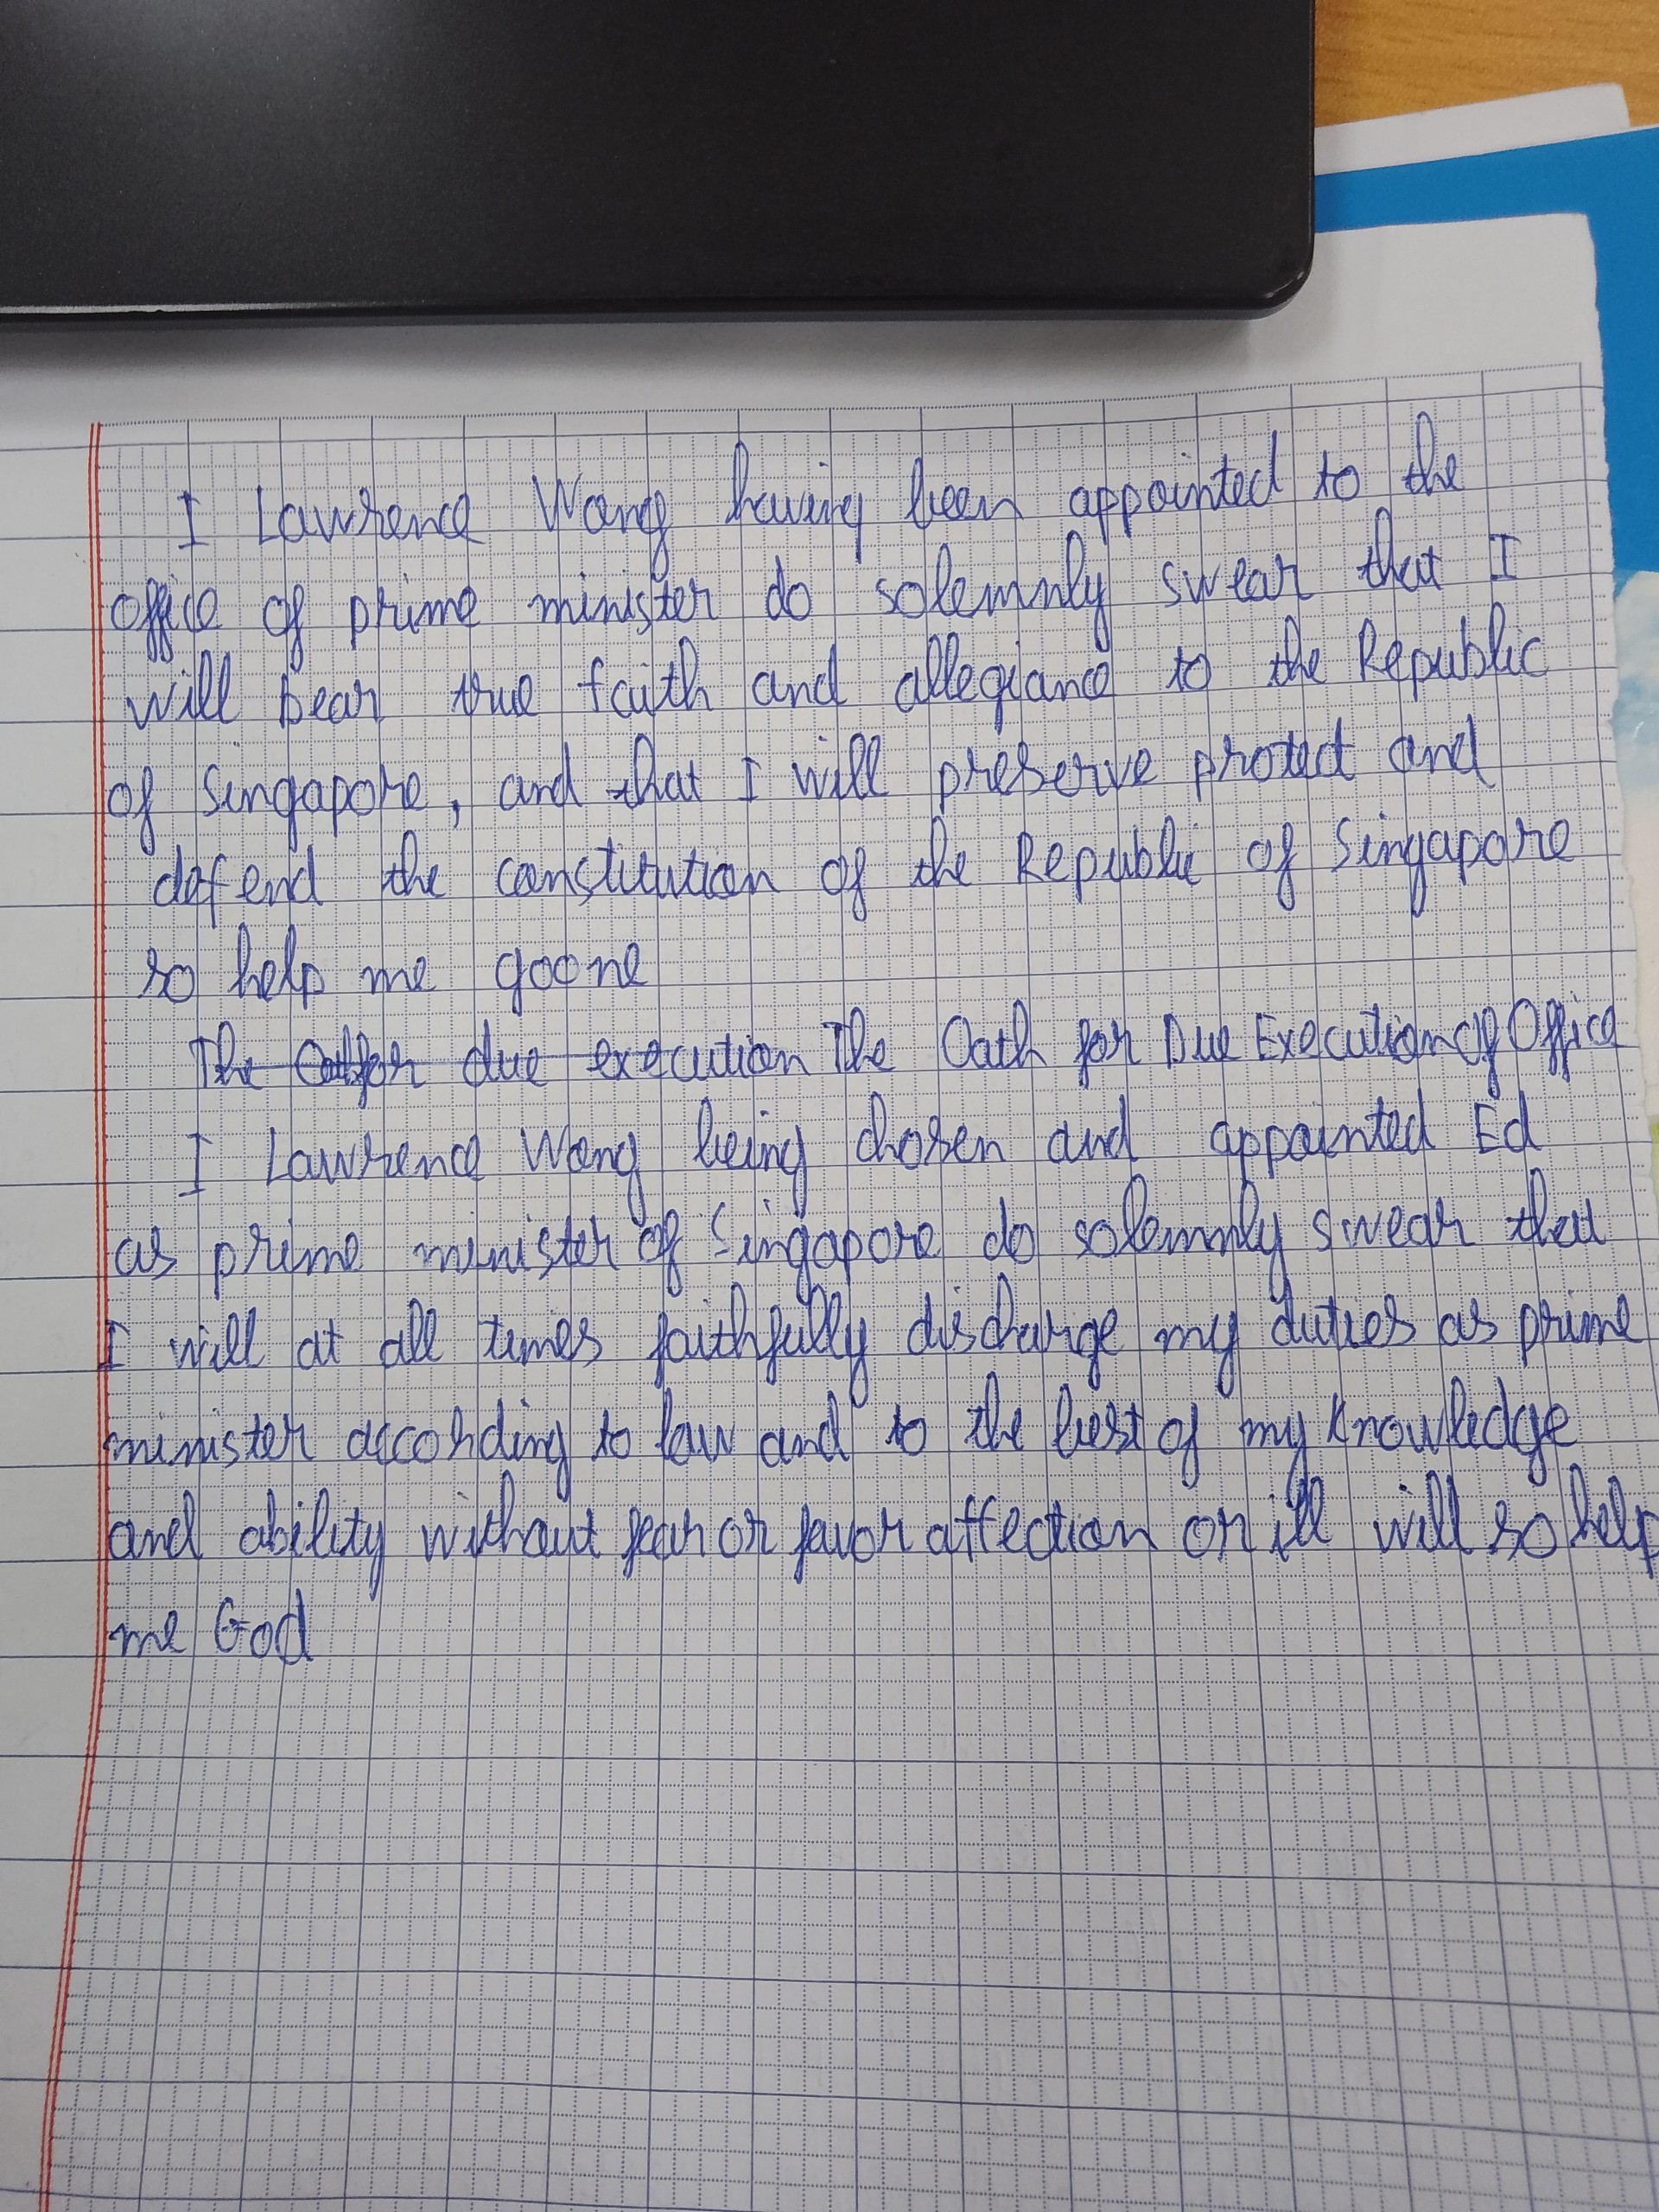 I Lawrence Wong having been appointed to the
office of prime minister do solemnly swear that I
will bear true faith and allegiance to the Republic
of Singapore, and that I will preserve protect and
defend the constitution of the Republic of Singapore
so help me goone
The Oathfor due execution The Oath for Due Execution of Office
I Lawrence Wong being chosen and appointed Ed
as prime minister of Singapore do solemnly swear that
I will at all times faithfully discharge my duties as prime
minister according to law and to the best of my knowledge
and ability without fear or favor affection or ill will so help
me God